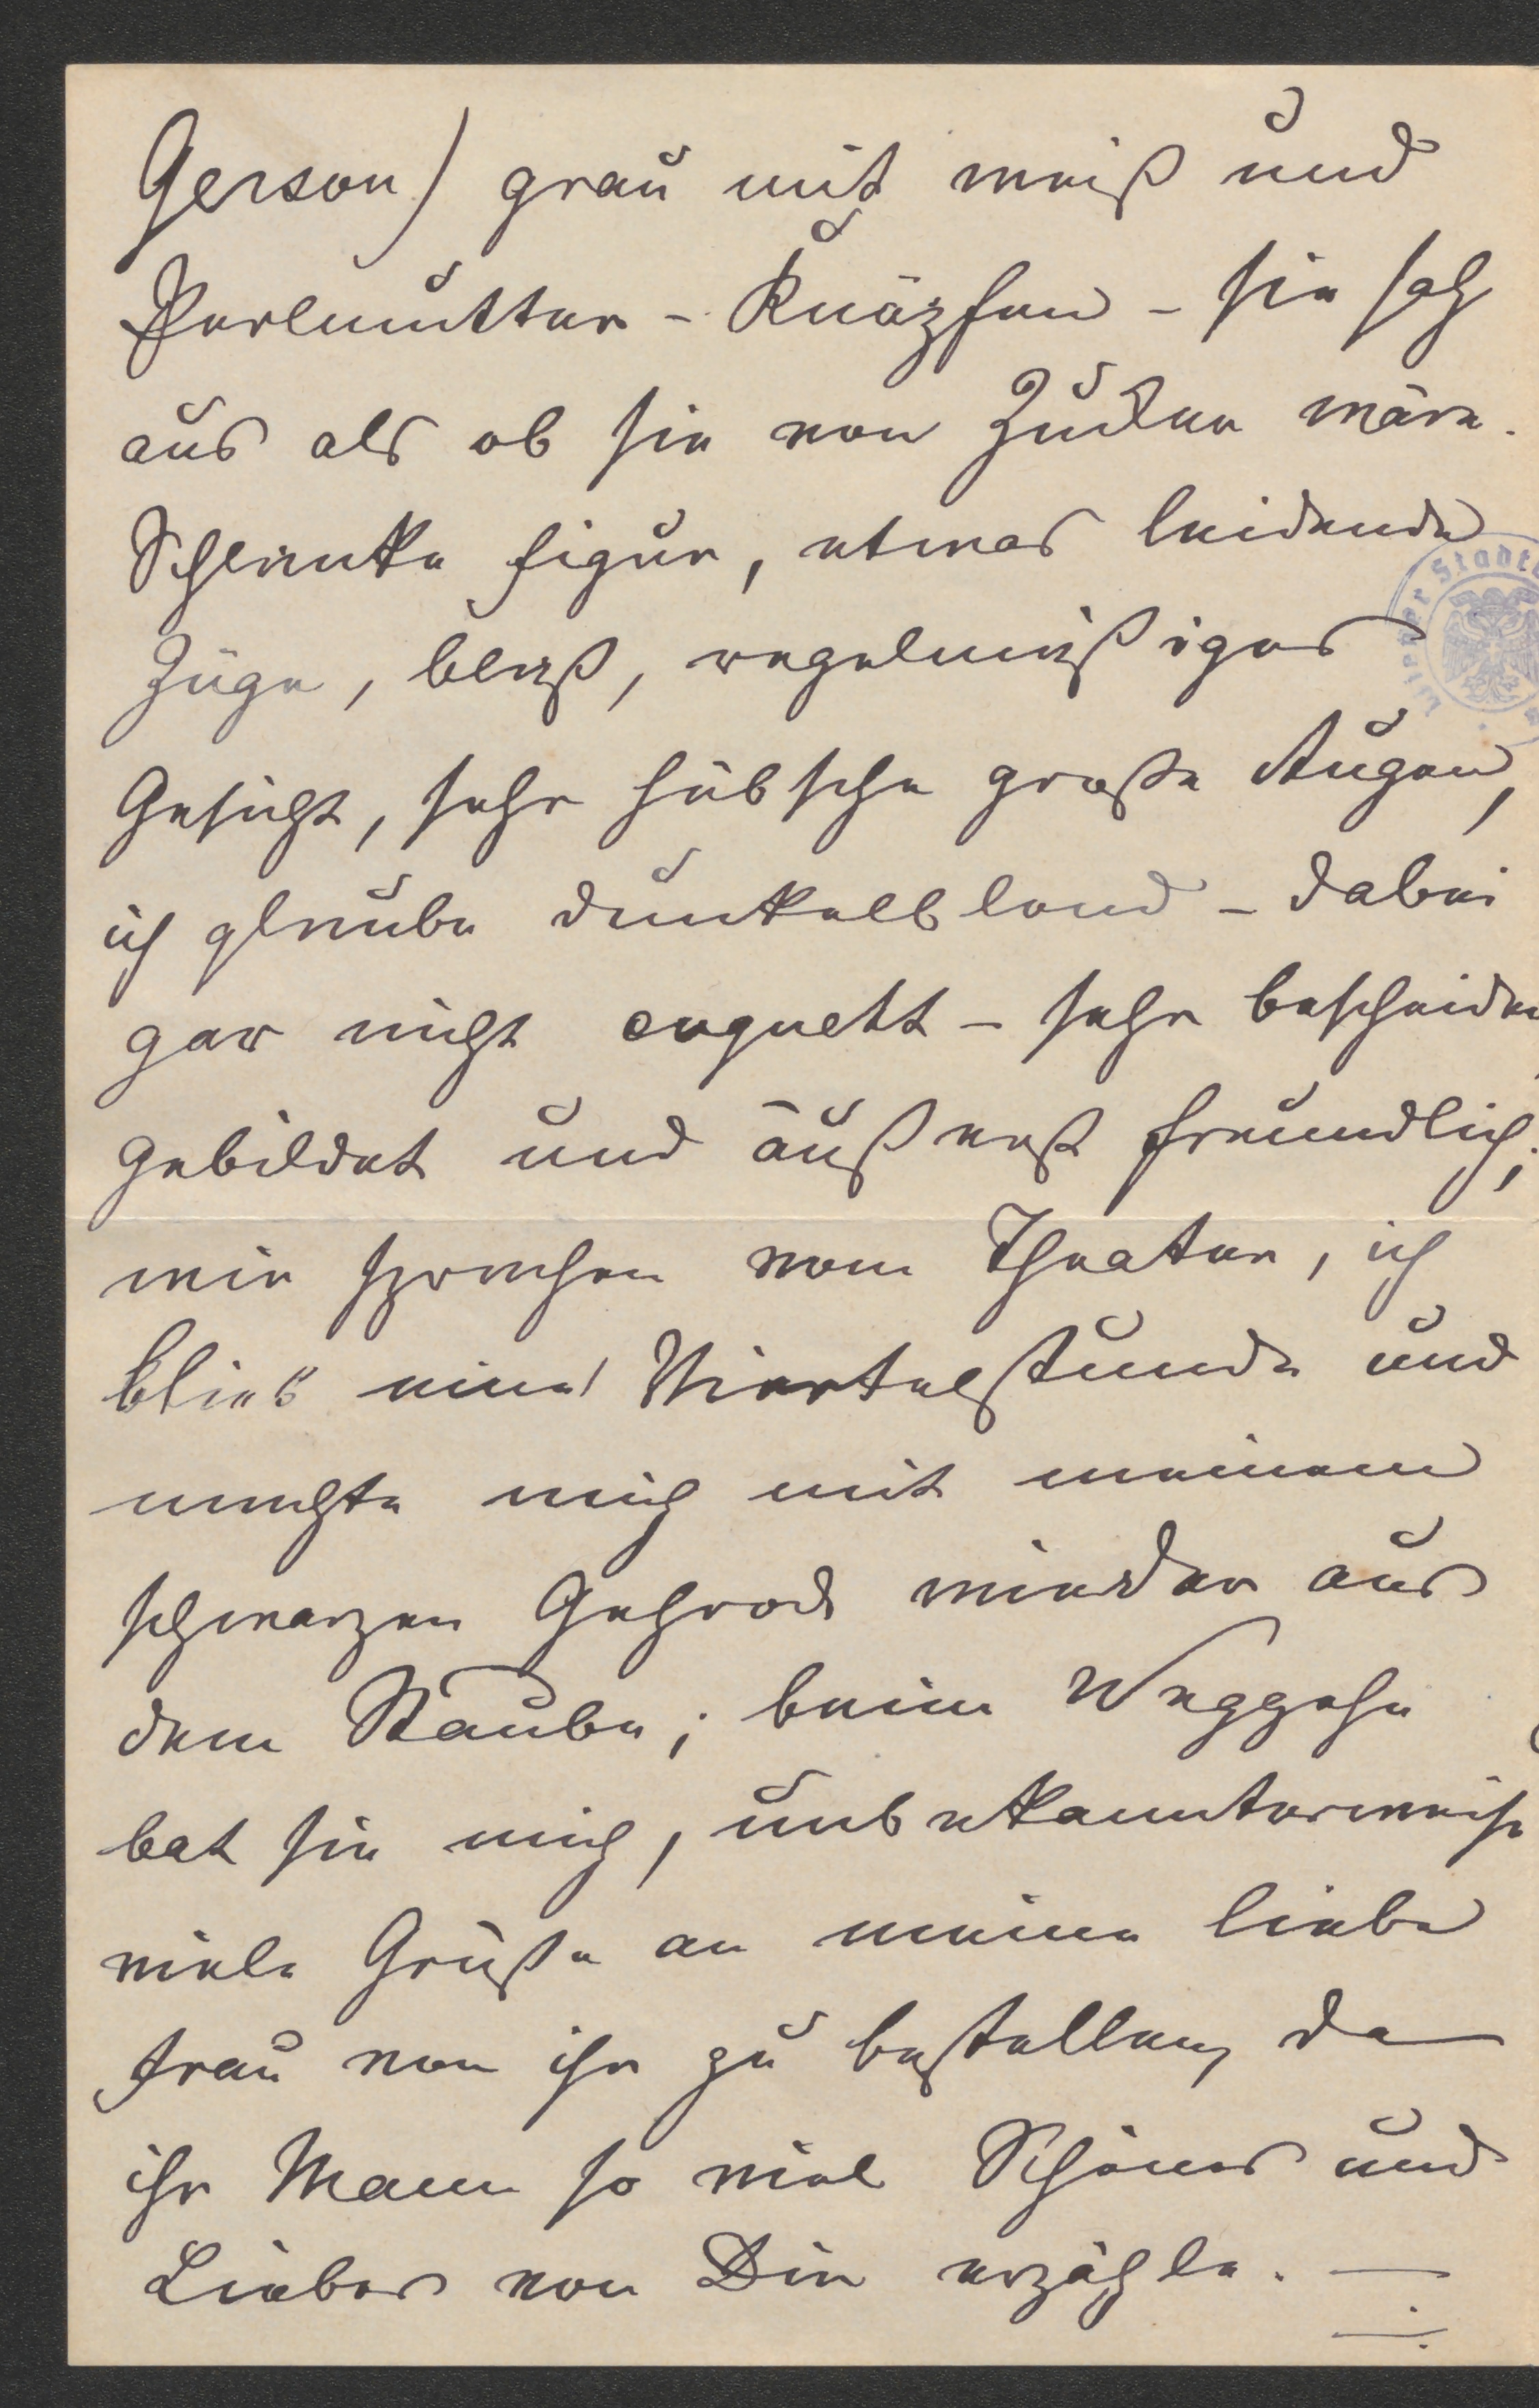 Gerson) grau mit weiß und
Perlmutter-Knöpfen - sie sah
aus als ob sie von Zucker wäre.
Schlanke Figur, etwas leidende
Züge, blaß, regelmäßiges
Gesicht, sehr hübsche große Augen,
ich glaube dunkelblond - dabei
gar nicht coquett - sehr bescheiden
gebildet und äußerst freundlich;
wir sprachen vom Theater, ich
blieb eine Viertelstunde und
machte mich mit meinem
schwarzen Gehrock wieder aus
dem Staube; beim Weggehn
bat sie mich, unbekannterweise
viele Grüße an meine liebe
Frau von ihr zu bestellen, da
ihr Mann so viel Schönes und
Liebes von Dir erzähle. —